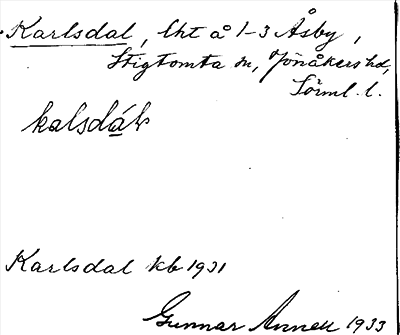 Karlsdal, lht å 1-3 Åsby,
Stigtomta sn, Jönåkers hd,
Sörml. l.
kalsdáḷ
Karlsdal kb 1931
Gunnar Annell 1933